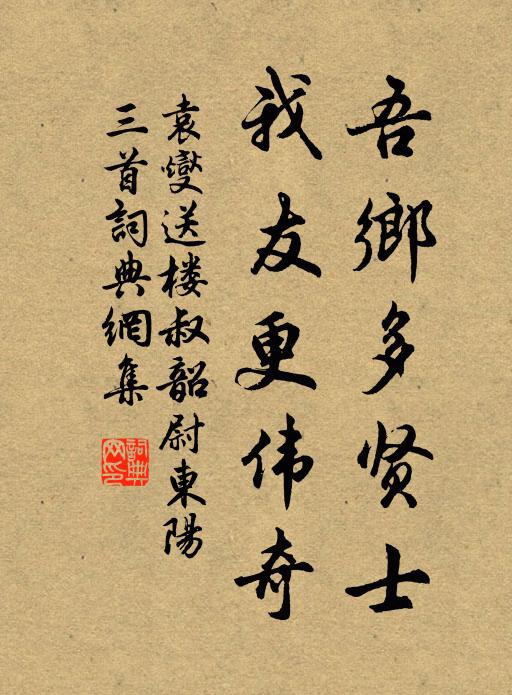 吾鄉多贤士
我友更伟奇
袁燮送楼叔韶尉東陽
三首詞典網集
詞典网印